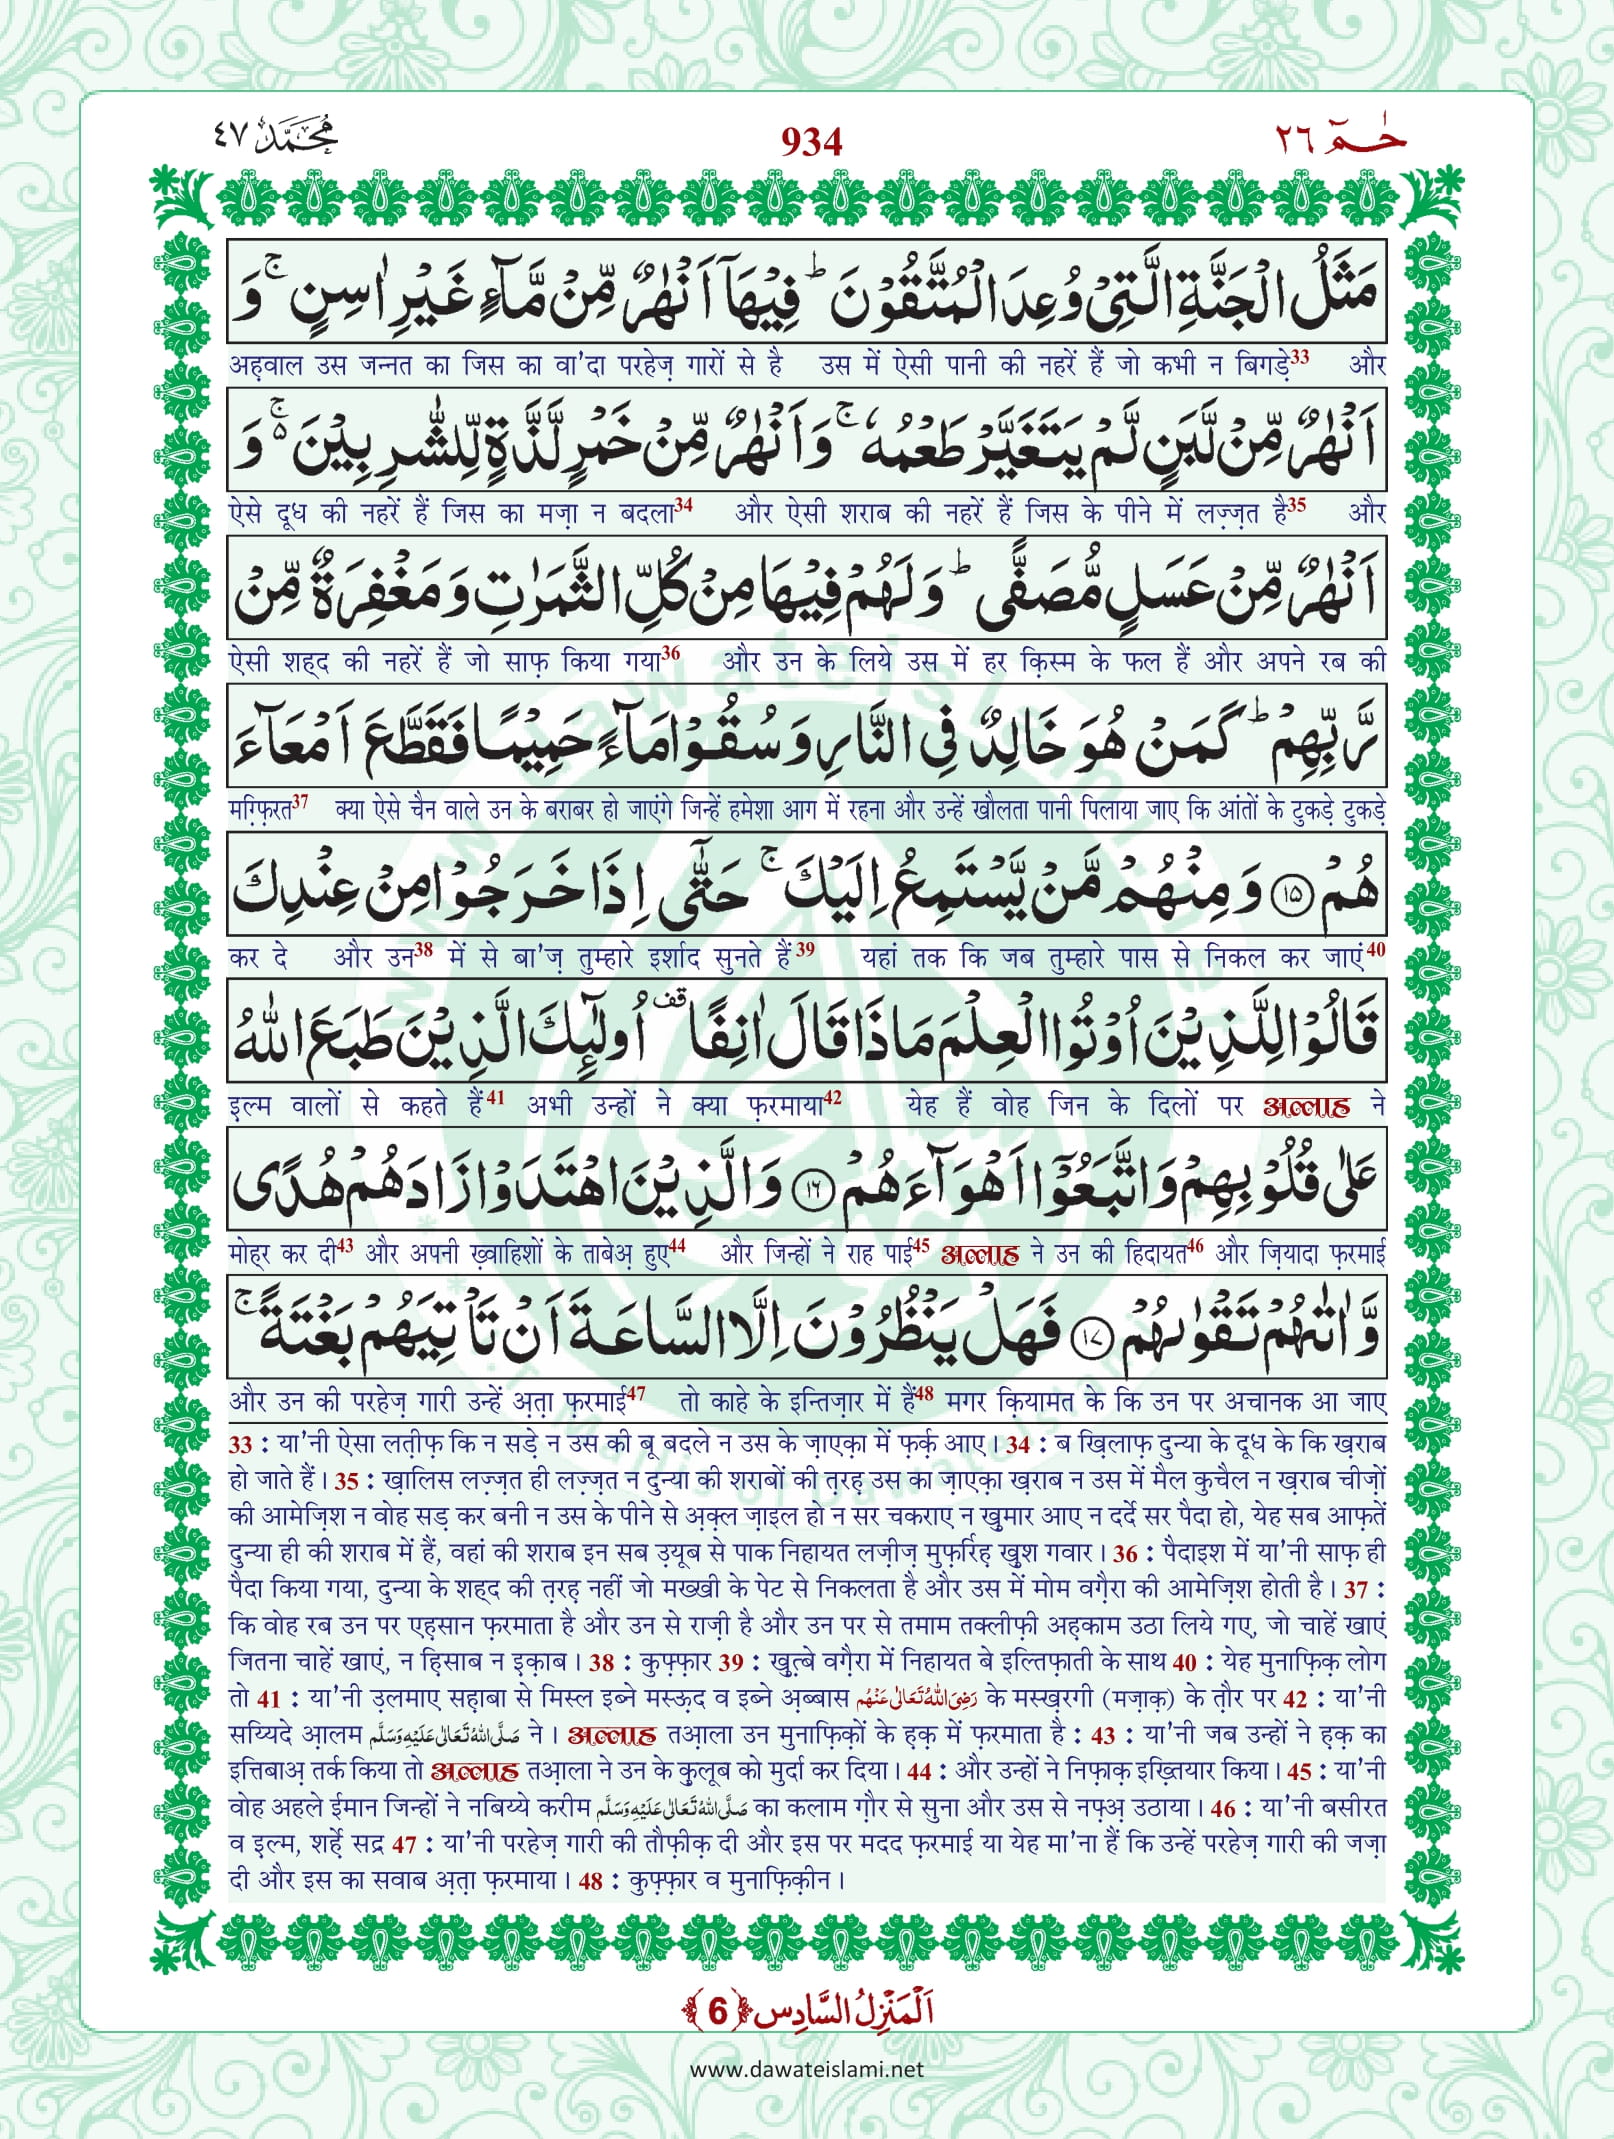 حٰمٓ ٢٦
934
مُحَمَّد ٤٧
مَثَلُ الْجَنَّةِ الَّتِیْ وُعِدَ الْمُتَّقُوْنَ ؕ فِیْهَاۤ اَنْهٰرٌ مِّنْ مَّآءٍ غَیْرِ اٰسِنٍ ۚ وَ
अह़वाल उस जन्नत का जिस का वा'दा परहेज़ गारों से है उस में ऐसी पानी की नहरें हैं जो कभी न बिगड़े33 और
اَنْهٰرٌ مِّنْ لَّبَنٍ لَّمْ یَتَغَیَّرْ طَعْمُهٗ ۚ وَ اَنْهٰرٌ مِّنْ خَمْرٍ لَّذَّةٍ لِّلشّٰرِبِیْنَ ۬ۚ وَ
ऐसे दूध की नहरें हैं जिस का मज़ा न बदला34 और ऐसी शराब की नहरें हैं जिस के पीने में लज़्ज़त है35 और
اَنْهٰرٌ مِّنْ عَسَلٍ مُّصَفًّی ؕ وَ لَهُمْ فِیْهَا مِنْ كُلِّ الثَّمَرٰتِ وَ مَغْفِرَةٌ مِّنْ
ऐसी शह्द की नहरें हैं जो साफ़ किया गया36 और उन के लिये उस में हर क़िस्म के फल हैं और अपने रब की
رَّبِّهِمْ ؕ كَمَنْ هُوَ خَالِدٌ فِی النَّارِ وَ سُقُوْا مَآءً حَمِیْمًا فَقَطَّعَ اَمْعَآءَ
मग़्फ़िरत37 क्या ऐसे चैन वाले उन के बराबर हो जाएंगे जिन्हें हमेशा आग में रहना और उन्हें खौलता पानी पिलाया जाए कि आंतों के टुकड़े टुकड़े
هُمْ ﴿۱۵﴾ وَ مِنْهُمْ مَّنْ یَّسْتَمِعُ اِلَیْكَ ۚ حَتّٰۤی اِذَا خَرَجُوْا مِنْ عِنْدِكَ
कर दे और उन38 में से बा'ज़ तुम्हारे इर्शाद सुनते हैं39 यहां तक कि जब तुम्हारे पास से निकल कर जाएं40
قَالُوْا لِلَّذِیْنَ اُوْتُوا الْعِلْمَ مَا ذَا قَالَ اٰنِفًا ۫ اُولٰٓىِٕكَ الَّذِیْنَ طَبَعَ اللّٰهُ
इल्म वालों से कहते हैं41 अभी उन्हों ने क्या फ़रमाया42 येह हैं वोह जिन के दिलों पर अल्लाह ने
عَلٰی قُلُوْبِهِمْ وَ اتَّبَعُوْۤا اَهْوَآءَهُمْ ﴿۱۶﴾ وَ الَّذِیْنَ اهْتَدَوْا زَادَهُمْ هُدًی
मोहर कर दी43 और अपनी ख़्वाहिशों के ताबेअ़ हुए44 और जिन्हों ने राह पाई45 अल्लाह ने उन की हिदायत46 और ज़ियादा फ़रमाई
وَّ اٰتٰىهُمْ تَقْوٰىهُمْ ﴿۱۷﴾ فَهَلْ یَنْظُرُوْنَ اِلَّا السَّاعَةَ اَنْ تَاْتِیَهُمْ بَغْتَةً ۚ
और उन की परहेज़ गारी उन्हें अ़त़ा फ़रमाई47 तो काहे के इन्तिज़ार में हैं48 मगर क़ियामत के कि उन पर अचानक आ जाए
33 : या'नी ऐसा लत़ीफ़ कि न सड़े न उस की बू बदले न उस के ज़ाएक़ा में फ़र्क़ आए। 34 : ब ख़िलाफ़ दुन्या के दूध के कि ख़राब
हो जाते हैं। 35 : ख़ालिस लज़्ज़त ही लज़्ज़त न दुन्या की शराबों की त़रह़ उस का ज़ाएक़ा ख़राब न उस में मैल कुचैल न ख़राब चीज़ों
की आमेज़िश न वोह सड़ कर बनी न उस के पीने से अ़क़्ल ज़ाइल हो न सर चकराए न ख़ुमार आए न दर्दे सर पैदा हो, येह सब आफ़तें
दुन्या ही की शराब में हैं, वहां की शराब इन सब उ़यूब से पाक निहायत लज़ीज़ मुफ़र्रिह़ ख़ुश गवार। 36 : पैदाइश में या'नी साफ़ ही
पैदा किया गया, दुन्या के शह्द की त़रह़ नहीं जो मख्खी के पेट से निकलता है और उस में मोम वग़ैरा की आमेज़िश होती है। 37 :
कि वोह रब उन पर एह़सान फ़रमाता है और उन से राज़ी है और उन पर से तमाम तक्लीफ़ी अह़काम उठा लिये गए, जो चाहें खाएं
जितना चाहें खाएं, न ह़िसाब न इ़क़ाब। 38 : कुफ़्फ़ार 39 : ख़ुत़्बे वग़ैरा में निहायत बे इल्तिफ़ाती के साथ 40 : येह मुनाफ़िक़ लोग
तो 41 : या'नी उ़लमाए सह़ाबा से मिस्ल इब्ने मस्ऊ़द व इब्ने अ़ब्बास رَضِیَ اللّٰهُ تَعَالٰی عَنْهُم के मस्ख़रगी (मज़ाक़) के त़ौर पर 42 : या'नी
सय्यिदे आ़लम صَلَّی اللّٰهُ تَعَالٰی عَلَیْهِ وَسَلَّم ने। अल्लाह तआ़ला उन मुनाफ़िक़ों के ह़क़ में फ़रमाता है : 43 : या'नी जब उन्हों ने ह़क़ का
इत्तिबाअ़ तर्क किया तो अल्लाह तआ़ला ने उन के क़ुलूब को मुर्दा कर दिया। 44 : और उन्हों ने निफ़ाक़ इख़्तियार किया। 45 : या'नी
वोह अहले ईमान जिन्हों ने नबिय्ये करीम صَلَّی اللّٰهُ تَعَالٰی عَلَیْهِ وَسَلَّم का कलाम ग़ौर से सुना और उस से नफ़्अ़ उठाया। 46 : या'नी बसीरत
व इल्म, शर्ह़े सद्र 47 : या'नी परहेज़ गारी की तौफ़ीक़ दी और इस पर मदद फ़रमाई या येह मा'ना हैं कि उन्हें परहेज़ गारी की जज़ा
दी और इस का सवाब अ़त़ा फ़रमाया। 48 : कुफ़्फ़ार व मुनाफ़िक़ीन।
اَلْمَنْزِلُ السَّادِس ﴿6﴾
www.dawateislami.net